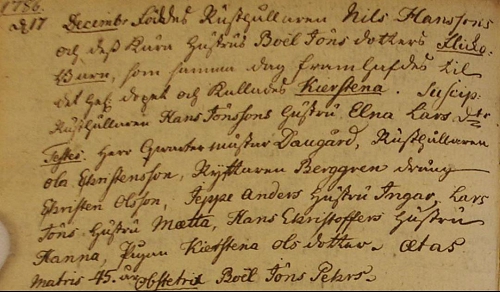 1786.
d. 17 Decembr föddes Rusthållaren Nils Hanssons
och dess Kära Hustrus Boël Jöns dotters Flicko-
Barn, som samma dag framhafdes til
det hel. dopet och Kallades Kierstena. Suscip:
Rusthållaren Hans Jönssons Hustru Elna Lars dtr.
Testes. Herr Qvartermästar Daugård, Rusthållaren
Ola Christensson, Ryttaren Berggren dräng
Christen Olsson, Jeppe Anders Hustru Ingar, Lars
Jöns Hustru Mætta, Hans Christoffers Hustru
Hanna, Pigan Kierstena Ols dotter. Ætas
Matris 45. år Obstetrix Boël Jöns Pehrs